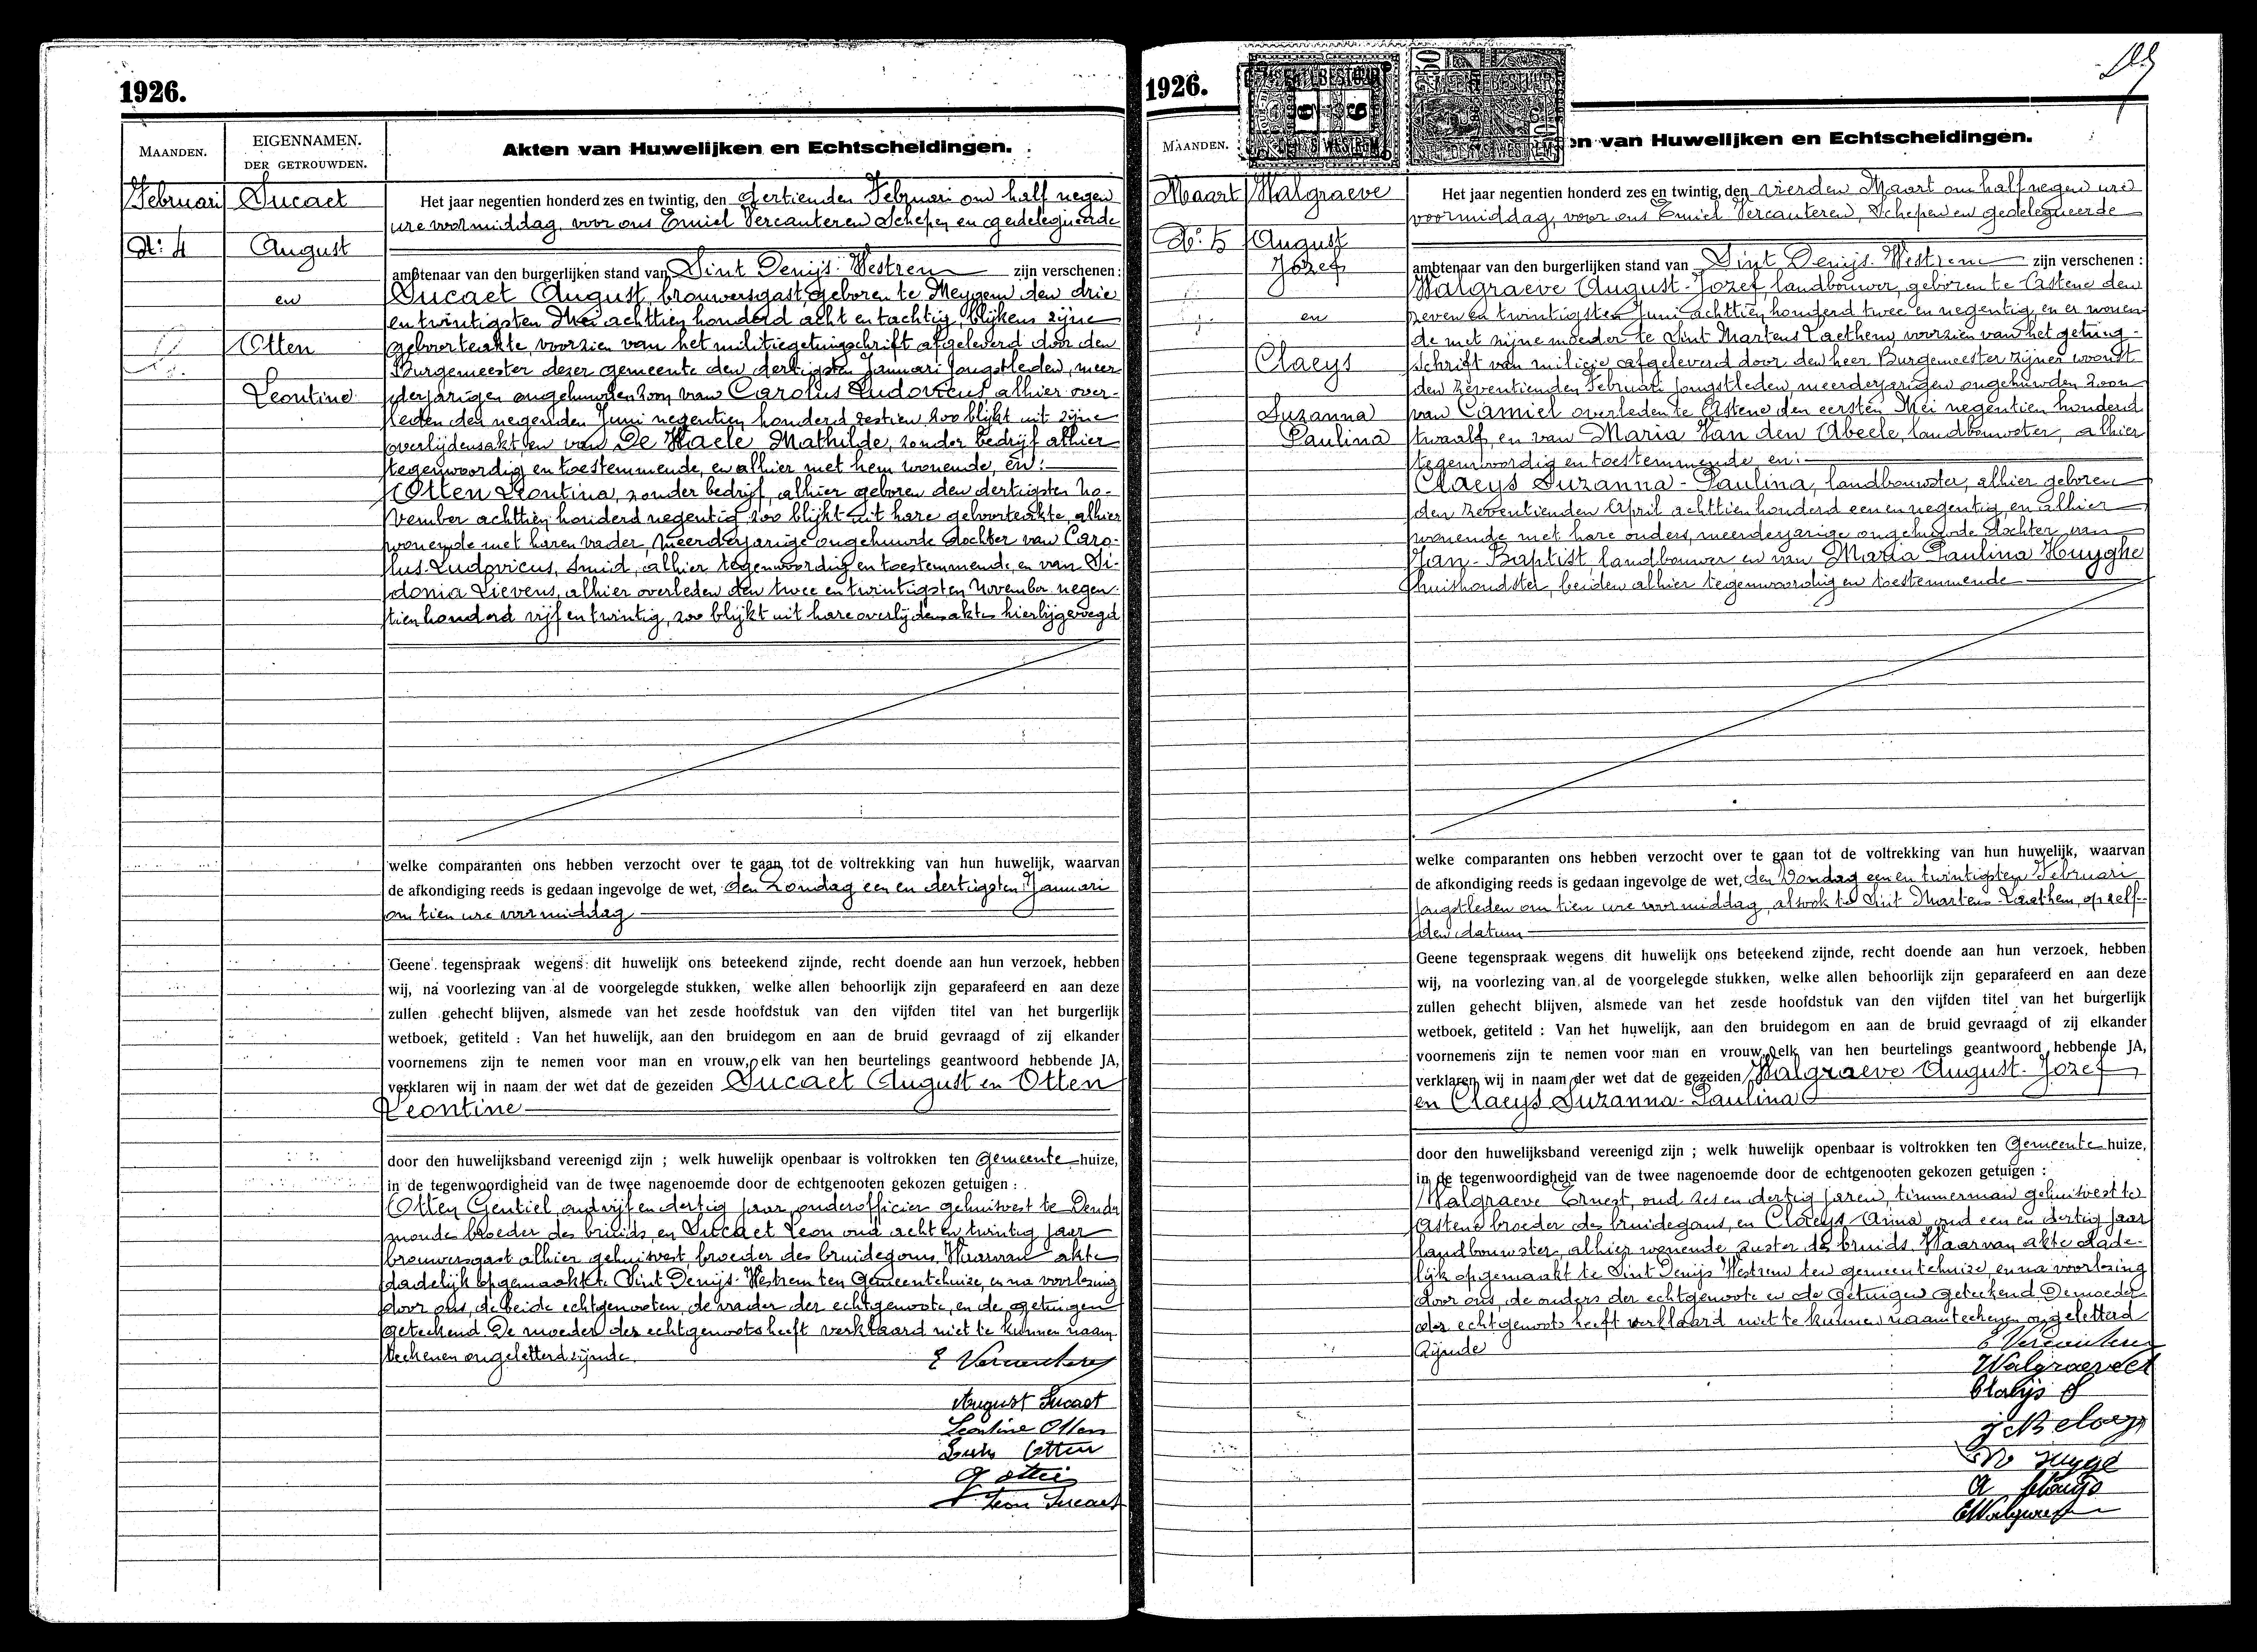 1926.
MAANDEN.
EIGENNAMEN.
DER GETROUWDEN.
Akten van Huwelijken en Echtscheidingen.
Februari
Nr. 4
Sucaet
August
en
Otten
Leontine
Het jaar negentien honderd zes en twintig, den dertienden Februari om half negen
ure voormiddag voor ons Emiel Vercauteren Schepen en gedelegueerde
ambtenaar van den burgerlijken stand van Sint Denijs-Westrem zijn verschenen:
Sucaet August, brouwersgast, geboren te Meygem den drie
en twintigsten Mei achttien honderd acht en tachtig, blijkens zijne
geboorteakte, voorzien van het militiegetuigschrift afgeleverd door den
Burgemeester dezer gemeente den dertigsten Januari jongstleden, meer
derjarigen ongehuwden zoon van Carolus Ludovicus, alhier over-
leden den negenden Juni negentien honderd zestien zoo blijkt uit zijne
overlijdensakt, en van De Haele Mathilde, zonder bedrijf alhier
tegenwoordig en toestemmende, en alhier met hem wonende, en:
Otten Leontina, zonder bedrijf, alhier geboren den dertigsten No-
vember achttien honderd negentig, zoo blijkt uit hare geboorteakte, alhier
wonende met haren vader, meerderjarige ongehuwde dochter van Caro-
lus-Ludovicus, smid, alhier tegenwoordig en toestemmende, en van Si-
donia Lievens, alhier overleden den twee en twintigsten November negen-
tien honderd vijf en twintig, zoo blijkt uit hare overlijdensakte hierbijgevoegd
welke comparanten ons hebben verzocht over te gaan tot de voltrekking van hun huwelijk, waarvan
de afkondiging reeds is gedaan ingevolge de wet, den Zondag een en dertigsten Januari
om tien ure voormiddag
Geene tegenspraak wegens dit huwelijk ons beteekend zijnde, recht doende aan hun verzoek, hebben
wij, na voorlezing van al de voorgelegde stukken, welke allen behoorlijk zijn geparafeerd en aan deze
zullen gehecht blijven, alsmede van het zesde hoofdstuk van den vijfden titel van het burgerlijk
wetboek, getiteld : Van het huwelijk, aan den bruidegom en aan de bruid gevraagd of zij elkander
voornemens zijn te nemen voor man en vrouw, elk van hen beurtelings geantwoord hebbende JA,
verklaren wij in naam der wet dat de gezeiden Sucaet August en Otten
Leontine
door den huwelijksband vereenigd zijn ; welk huwelijk openbaar is voltrokken ten Gemeente huize,
in de tegenwoordigheid van de twee nagenoemde door de echtgenooten gekozen getuigen :
Otten Gentiel, oud vijf en dertig jaar, onderofficier gehuisvest te Dender
monde broeder des bruids, en Sucaet Leon oud acht en twintig jaar
brouwersgast alhier gehuisvest broeder des bruidegoms. Waarvan akte
dadelijk opgemaakt te Sint Denijs-Westrem ten Gemeentehuize, en na voorlezing
door ons, de beide echtgenooten, de vader der echtgenoote, en de getuigen
geteekend. De moeder des echtgenoots heeft verklaard niet te kunnen naam-
teekenen ongeletterd zijnde
E Vercauteren
August Sucaet
Leontine Otten
Otten
G Otten
Leon Sucaet
1926.
MAANDEN.
en van Huwelijken en Echtscheidingen.
Maart
Nr. 5
Walgraeve
August
Jozef
en
Claeys
Suzanna
Paulina
Het jaar negentien honderd zes en twintig, den vierden Maart om half negen ure
voormiddag, voor ons Emiel Vercauteren, Schepen en gedelegueerde
ambtenaar van den burgerlijken stand van Sint Denijs-Westrem zijn verschenen :
Walgraeve August-Jozef, landbouwer, geboren te Astene den
zeven en twintigsten Juni achttien honderd twee en negentig, en er wonen-
de met zijne moeder te Sint Martens Laethem, voorzien van het getuig-
schrift van milicie afgeleverd door den heer Burgemeester zijner woonst
den zeventienden Februari jongstleden, meerderjarigen ongehuwden zoon
van Camiel overleden te Astene den eersten Mei negentien honderd
twaalf, en van Maria Van den Abeele, landbouwster, alhier
tegenwoordig en toestemmende en:
Claeys Suzanna-Paulina, landbouwster, alhier geboren
den zeventienden April achttien honderd een en negentig, en alhier
wonende met hare ouders, meerderjarige ongehuwde dochter van
Jan-Baptist, landbouwer en van Maria Paulina Huyghe
huishoudster, beiden alhier tegenwoordig en toestemmende
welke comparanten ons hebben verzocht over te gaan tot de voltrekking van hun huwelijk, waarvan
de afkondiging reeds is gedaan ingevolge de wet, den Zondag een en twintigsten Februari
jongstleden om tien ure voormiddag, alsook te Sint Martens-Laethem, op zelf-
den datum
Geene tegenspraak wegens dit huwelijk ons beteekend zijnde, recht doende aan hun verzoek, hebben
wij, na voorlezing van al de voorgelegde stukken, welke allen behoorlijk zijn geparafeerd en aan deze
zullen gehecht blijven, alsmede van het zesde hoofdstuk van den vijfden titel van het burgerlijk
wetboek, getiteld : Van het huwelijk, aan den bruidegom en aan de bruid gevraagd of zij elkander
voornemens zijn te nemen voor man en vrouw, elk van hen beurtelings geantwoord hebbende JA,
verklaren wij in naam der wet dat de gezeiden Walgraeve August-Jozef
en Claeys Suzanna-Paulina
door den huwelijksband vereenigd zijn ; welk huwelijk openbaar is voltrokken ten Gemeente huize,
in de tegenwoordigheid van de twee nagenoemde door de echtgenooten gekozen getuigen :
Walgraeve Ernest, oud zes en dertig jaren, timmerman gehuisvest te
Astene broeder des bruidegoms, en Claeys Anna oud een en dertig jaar
landbouwster, alhier wonende zuster der bruids. Waarvan akte dade-
lijk opgemaakt te Sint Denijs Westrem ten gemeentehuize, en na voorlezing
door ons, de ouders der echtgenoote en de getuigen geteekend. De moeder
des echtgenoots heeft verklaard niet te kunnen naamteekenen ongeletterd
zijnde
E Vercauteren
Claeys S
A Claeys
E Walgraeve